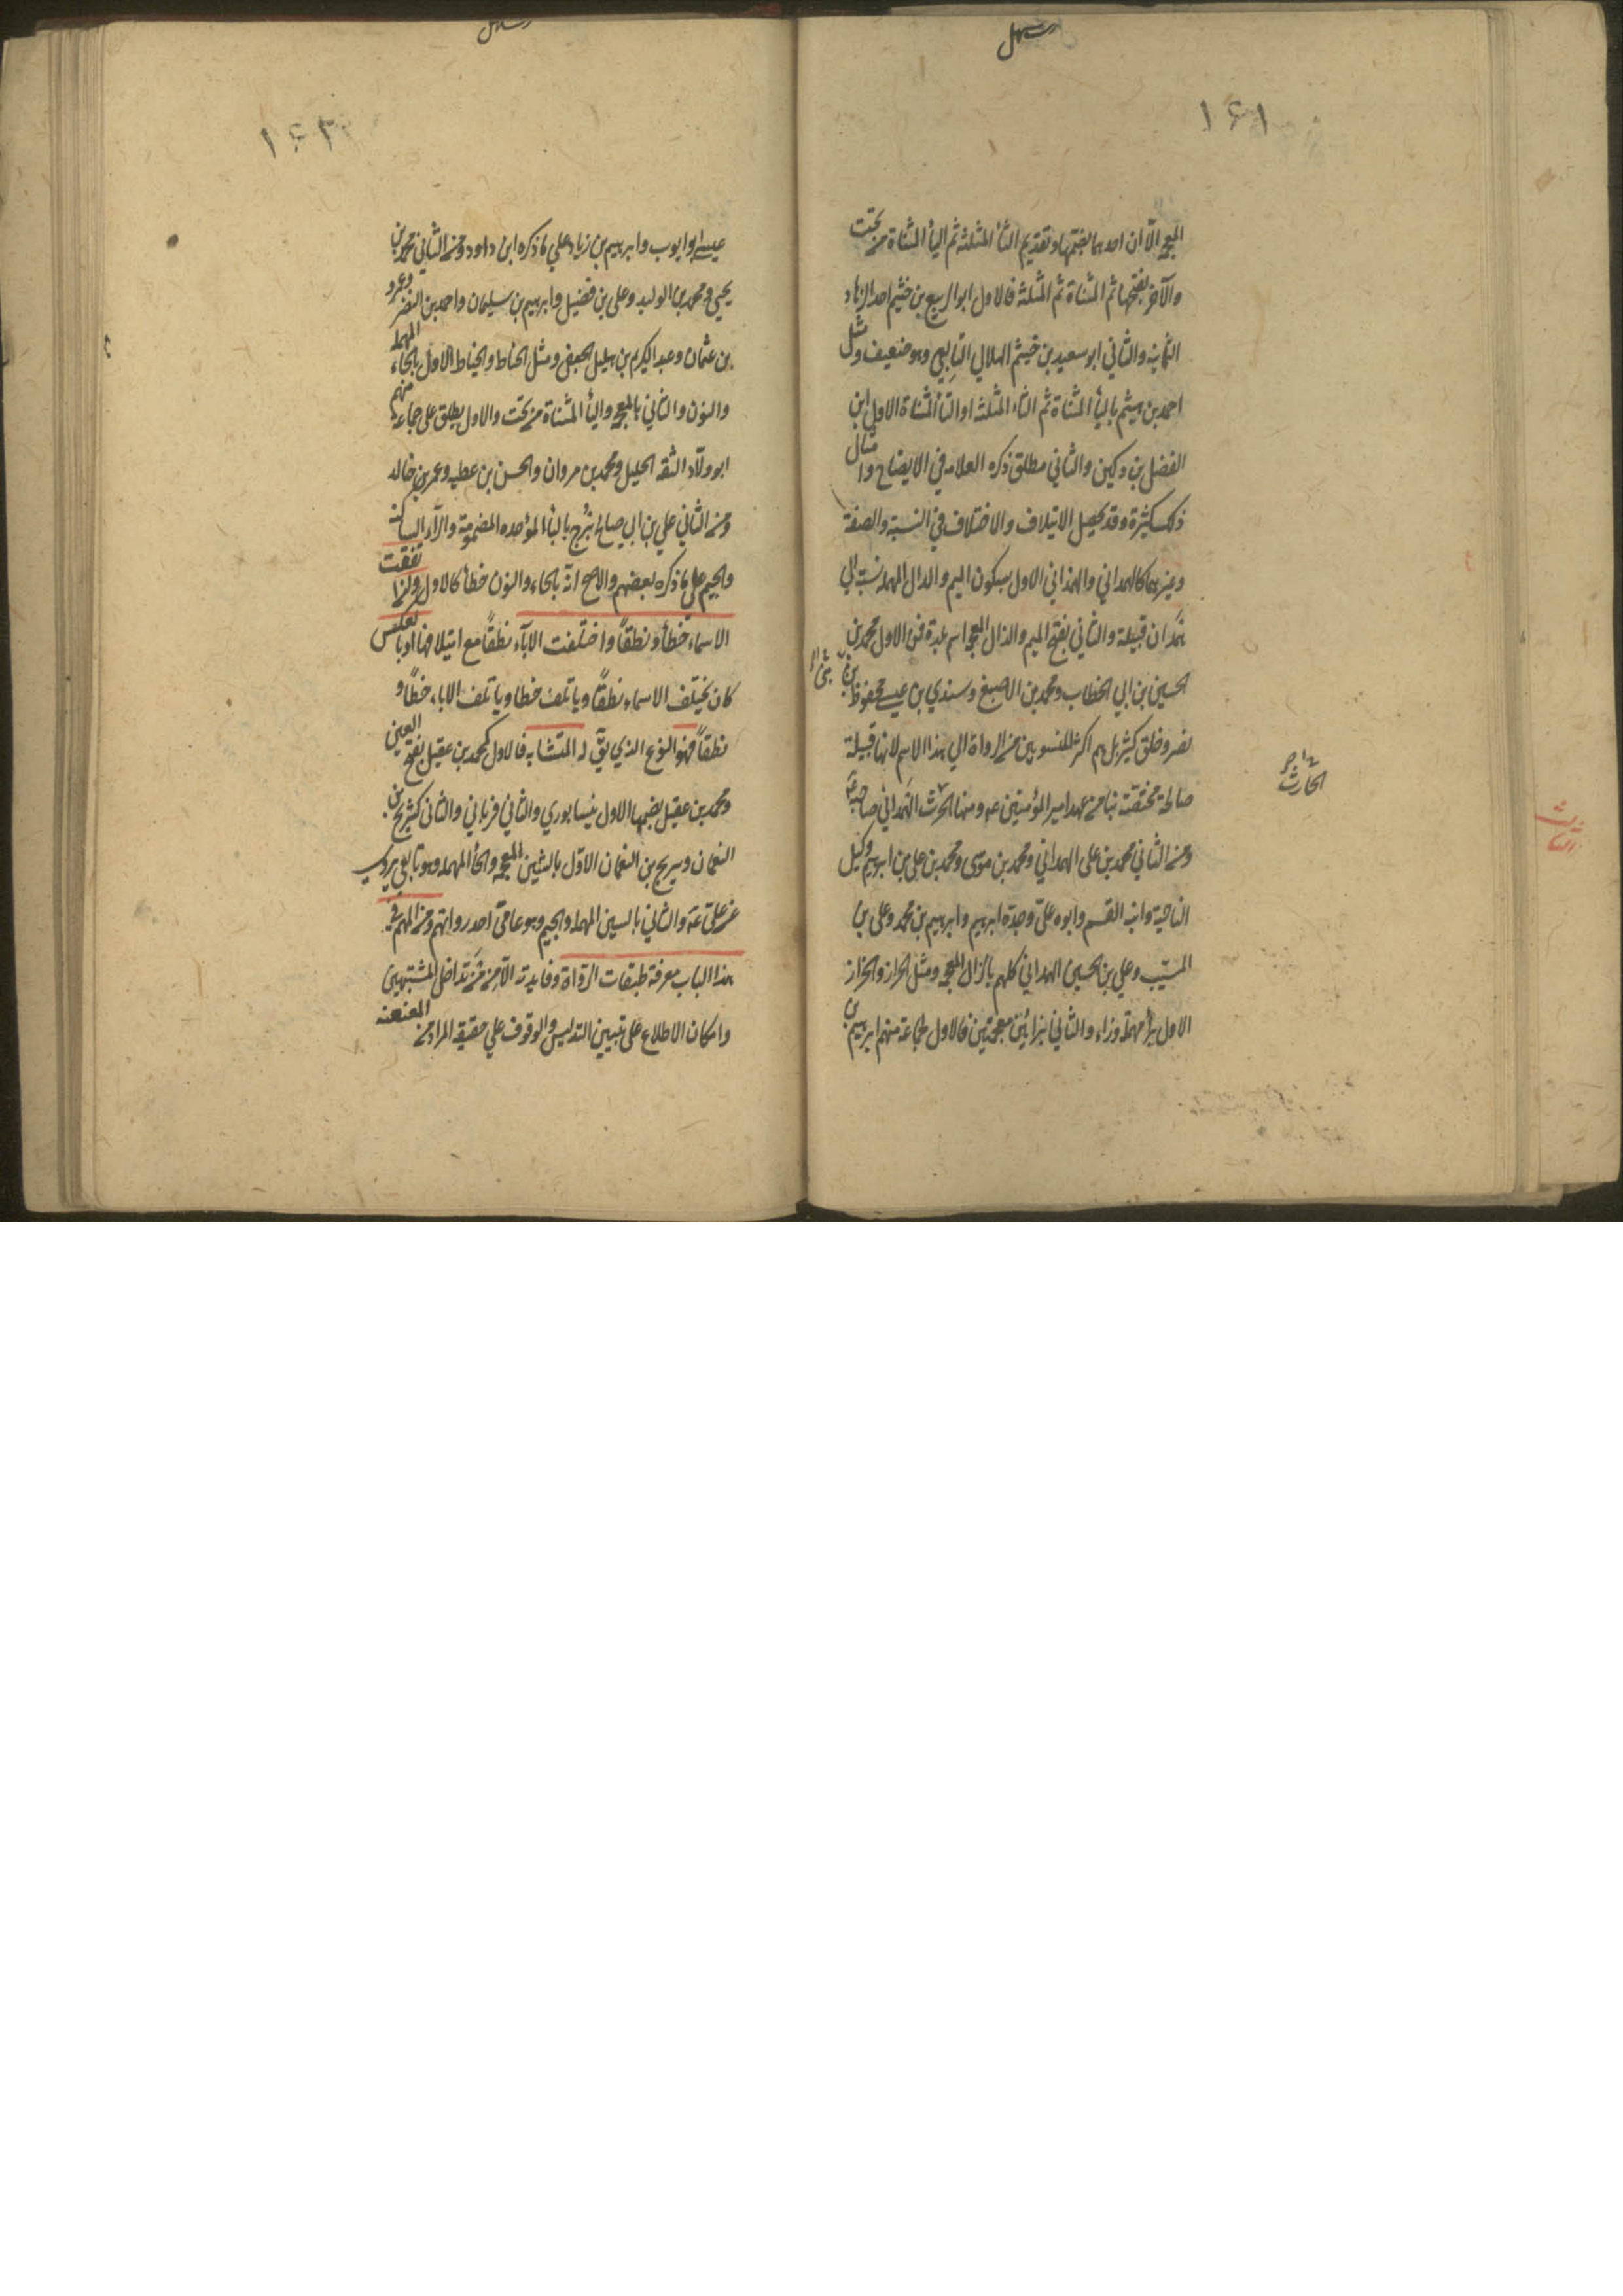 ١٦١
المعجمة الّا ان احدهما بضمّها وتقديم الثاء المثلثة ثم الياء المثناة من تحت
والآخر بفتحها ثم المثناة ثم المثلثة فالاول ابوالربيع بن خثيم احد الزهاد
الثمانية والثاني ابو سعيد بن خيثم الهلالي التابعي وهو ضعيف ومثل
احمد بن ميثم بالياء المثناة ثم الثاء المثلثة او التاء المثناة الاول ابن
الفضل بن دكين والثاني مطلق ذكره العلامه في الايضاح وامثال
ذلك كثيرة وقد يحصل الايتلاف والاختلاف في النسبة والصفة
وغيرهما كالهمداني والهمذاني الاول بسكون الميم والدال المهملة نسبة الي
همدان قبيلة والثاني بفتح الميم والذال المعجمة اسم بلدة فمن الاول محمد بن
الحسين بن ابي الخطاب ومحمد بن الاصبغ وسندي بن عيسى ومحفوظ بن
نصر وخلق كثير بل هم اكثر المنسوبين من الرواة الي هذا الاسم لانها قبيلة
صالحة مختصّة بنا من عهد امير المؤمنين عه ومنها الحرث الهمداني صاحبه
الحارث
ومن الثاني محمد بن على الهمداني ومحمد بن موسى ومحمد بن على بن ابرهيم وكيل
الناحية وابنه القسم وابوه علىّ وجدّه ابرهيم وابرهيم بن محمد وعلى بن
المسيّب وعلي بن الحسين الهمداني كلهم بالذال المعجمة ومثل الخراز والخزاز
الاول براء مهملة وزاء والثاني بزائين معجمتين فالاول لجماعة منهم ابرهيم بن
١٦٢
عيسى ابو ايوب وابرهيم بن زياد علي ما ذكره ابن داود ومن الثاني محمد بن
يحيي ومحمد بن الوليد وعلى بن فضيل وابرهيم بن سليمان واحمد بن النضر وعمرو
بن عثمان وعبد الكريم بن هليل الجعفي ومثل الحناط والخياط الاول بالحاء المهملة
والنون والثاني بالمعجمة والياء المثناة من تحت والاول يطلق على جماعة منهم
ابو ولّاد الثقة الجليل ومحمد بن مروان والحسن بن عطيه وعمر بن خالد
ومن الثاني علي بن ابي صالح بُزُرج بالباء الموحده المضمومة والرّاء الساكنة
والجيم على ما ذكره بعضهم والاصح انّه بالحاء والنون خطا كالاول وان اتفقت
الاسماء خطاً ونطقاً واختلفت الاباء نطقاً مع ايتلافها او بالعكس
كان يختلف الاسماء نطقاً ويأتلف خطا ويأتلف الاباء خطاً و
نطقاً فهو النوع الذي يقّ له المتشابه فالاول كمحمد بن عقيل بفتح العين
ومحمد بن عقيل بضمها الاول نيسابوري والثاني فريابي والثاني كشريح بن
النعمان وسريج بن النعمان الاوّل بالشين المعجمه والحاء المهمله وهو تابعي يروي
عن على عه والثاني بالسين المهملة والجيم وهو عامىّ احد رواتهم ومن المهم في
هذا الباب معرفة طبقات الرّواة وفايدته الامن من تداخل المشتبهين
وامكان الاطلاع على تبيين التدليس والوقوف علي حقيقة المراد من العنعنه